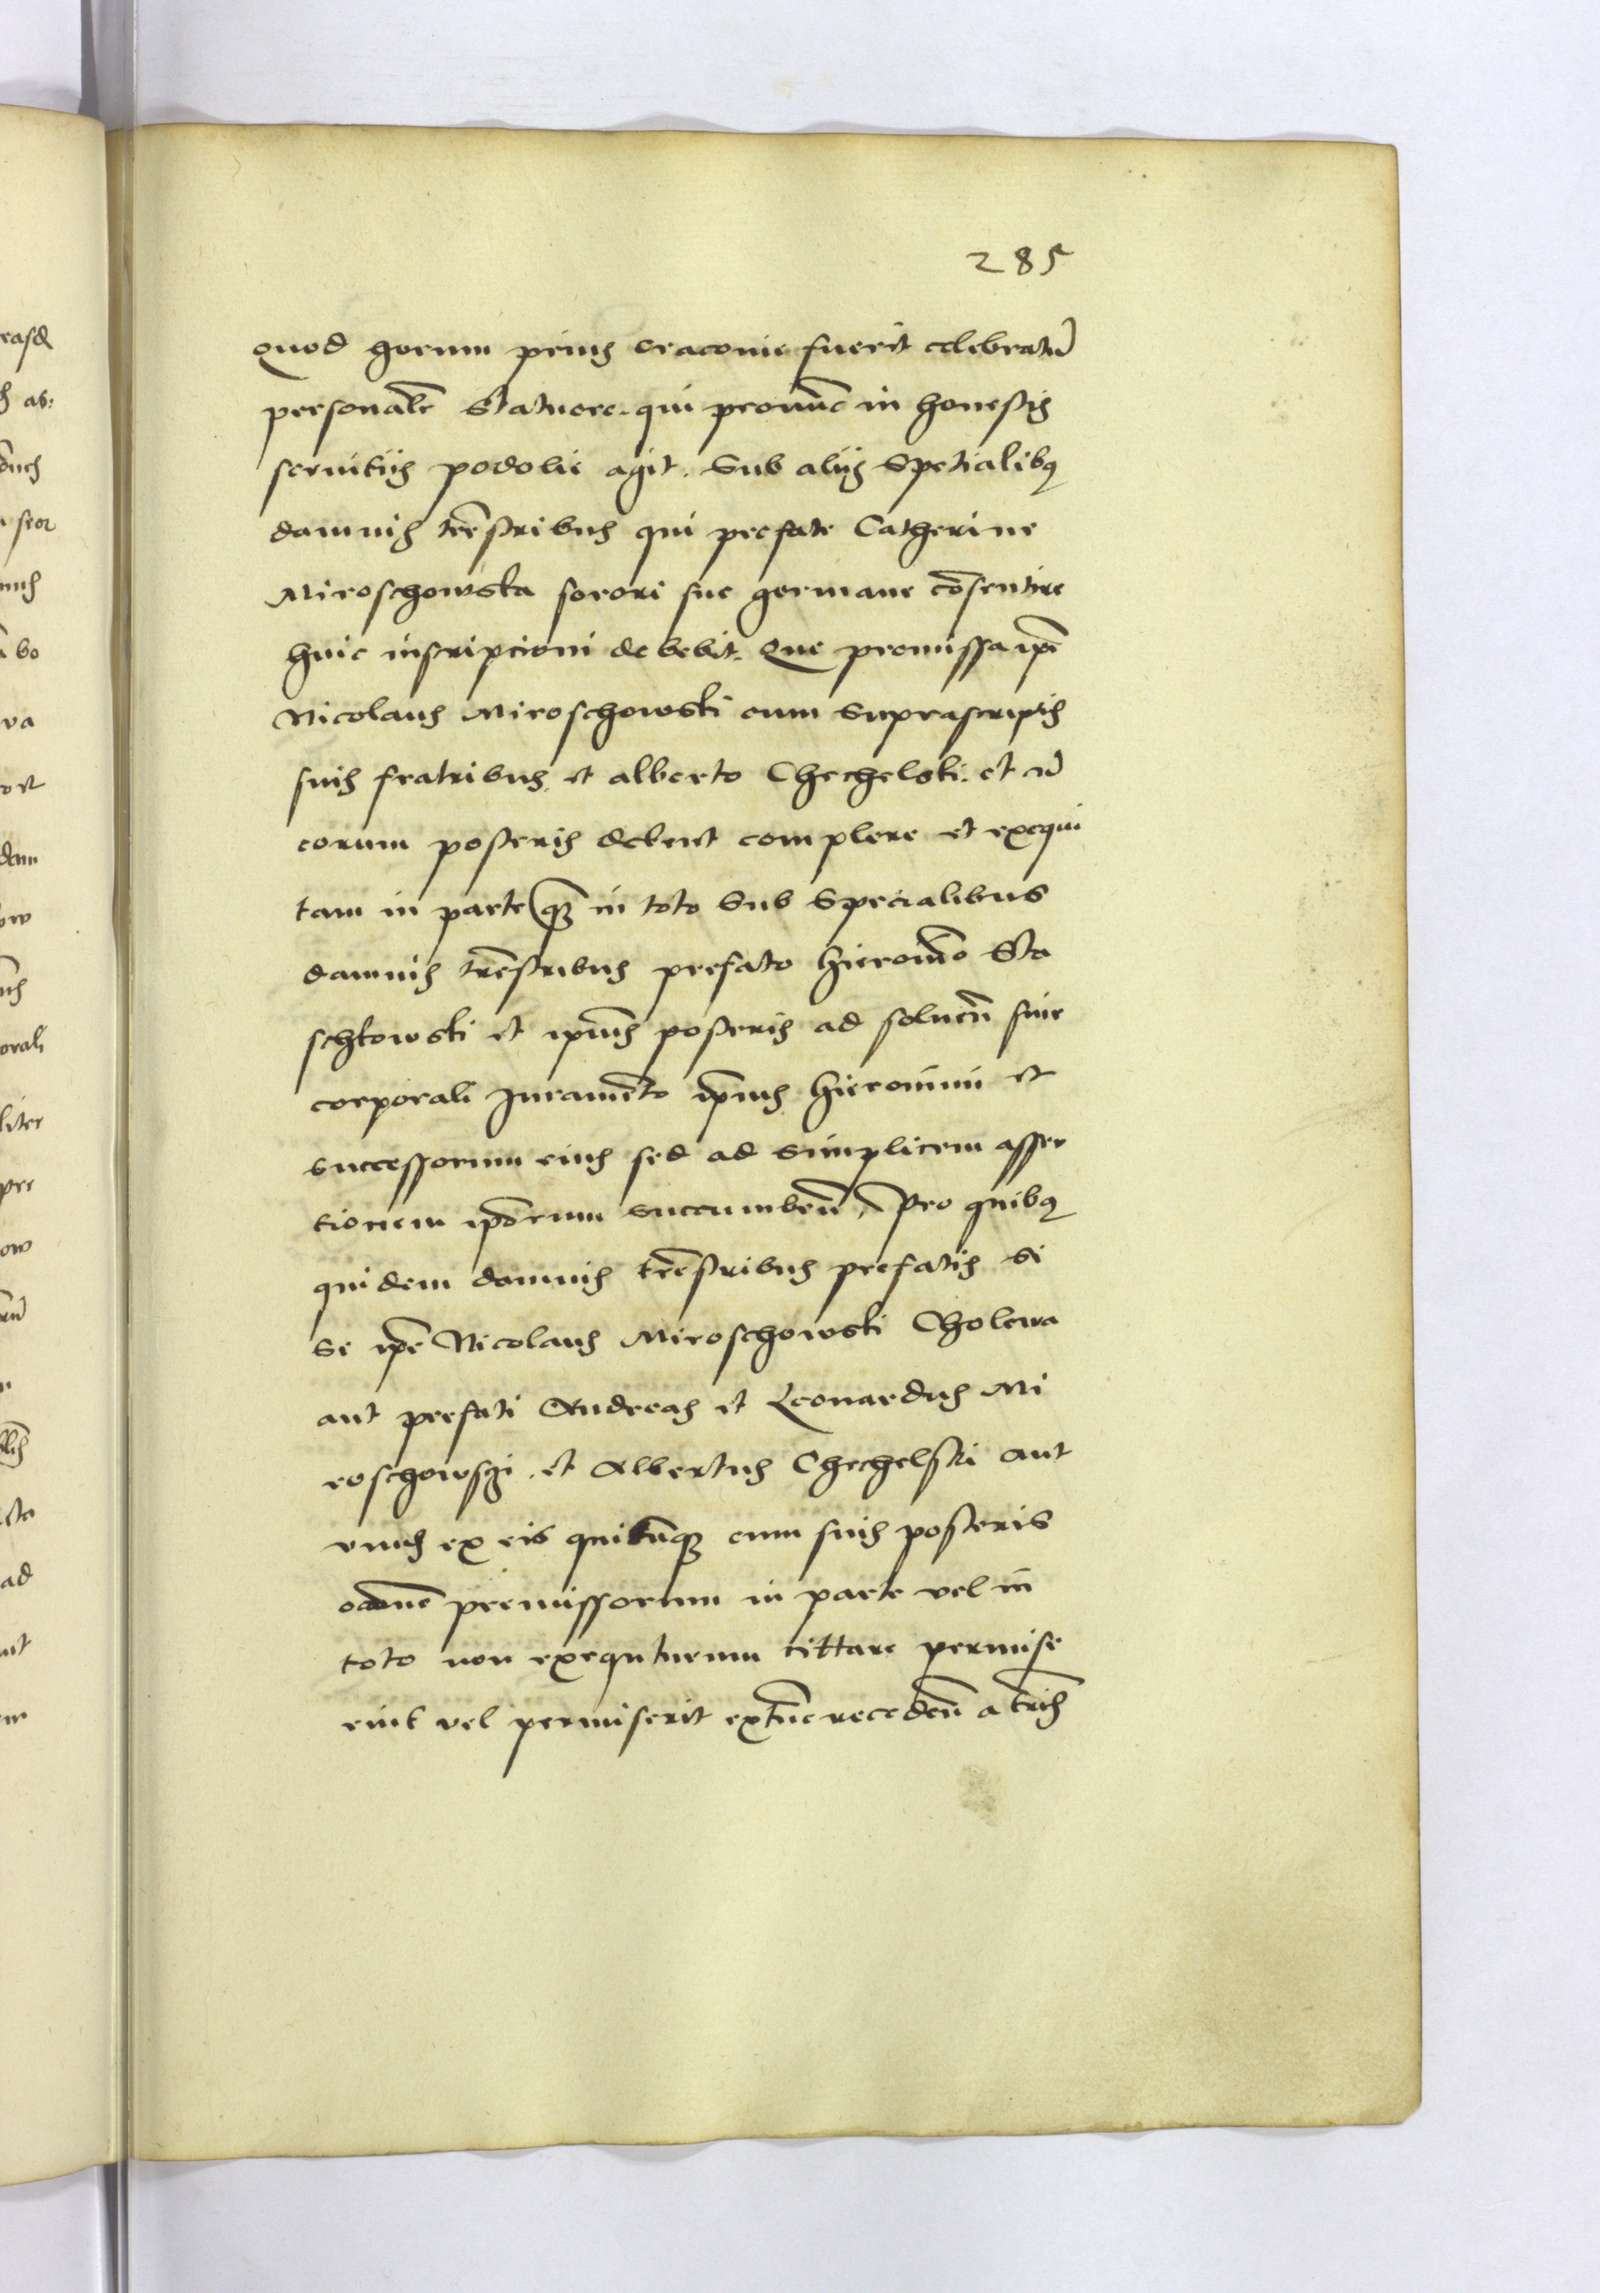 285
quod horum prius cracovie fuerit celebratū
personalr̄ statuere. qui pronūc in honestis
servitiis podolie agit. sub aliis spetialibꝫ
damnis trēstribus qui prefate Catherine
Miroschowska sorori sue germane cōsentire
huic inscripcioni debebit. Que premissa ip̄e
Nicolaus Miroschowski cum suprascriptis
suis fratribus. et alberto Chechelski. et cū
eorum posteris debent complere et exequi
tam in parte qꝫ in toto sub specialibus
damnis trēstribus prefato hieronimo Sta
schkowski et ipius posteris ad solucn̄ sine
corporali Iuramēto ip̄ius hieronimi et
successorum eius sed ad simplicem asser
tionem ip̄orum succumben̄. Pro quibꝫ
quidem damnis trēstribus prefatis si
se ip̄e Nicolaus Miroschowski Cholewa
aut prefati Andreas et Leonardus Mi
roschowsczi. et Albertus Chechelski aut
vnus ex eis quicūqꝫ cum suis posteris
premissorum in parte vel in
toto non exequturum cittare permise
rint vel permiserit extūc receden̄ a trīs
easd
as:
seor
bo
va
dem
ow
orali
liter
pre
ow
sta
ad